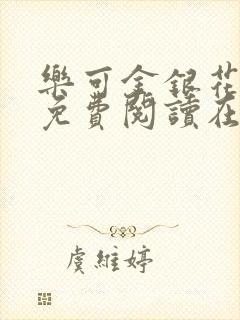 樂可金銀花
免費閱讀在
虞維婷